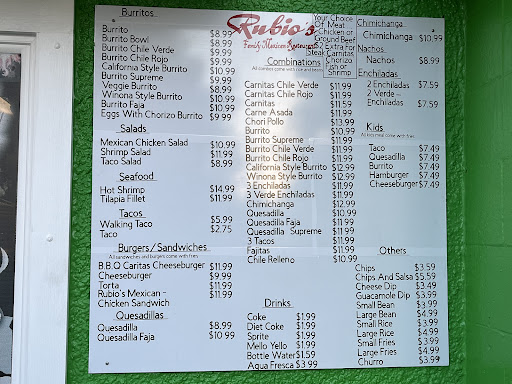 Burritos
Burrito $8.99
Burrito Bowl $8.99
Burrito Chile Verde $9.99
Burrito Chile Rojo $9.99
California Style Burrito $10.99
Burrito Supreme $9.99
Veggie Burrito $8.99
Winona Style Burrito $10.99
Burrito Faja $10.99
Eggs With Chorizo Burrito $9.99
Salads
Mexican Chicken Salad $10.99
Shrimp Salad $11.99
Taco Salad $8.99
Seafood
Hot Shrimp $14.99
Tilapia Fillet $11.99
Tacos
Walking Taco $5.99
Taco $2.75
Burgers/Sandwiches
All sandwiches and burgers come with fries
B.B.Q Caritas Cheeseburger $11.99
Cheeseburger $9.99
Torta $11.99
Rubio's Mexican - $11.99
Chicken Sandwich
Quesadillas
Quesadilla $8.99
Quesadilla Faja $10.99
Rubio's
Family Mexican Restaurant
Combinations
All combos come with rice and beans
Carnitas Chile Verde $11.99
Carnitas Chile Rojo $11.99
Carnitas $11.99
Carne Asada $11.99
Chori Pollo $13.99
Burrito $10.99
Burrito Supreme $11.99
Burrito Chile Verde $11.99
Burrito Chile Rojo $11.99
California Style Burrito $12.99
Winona Style Burrito $12.99
3 Enchiladas $11.99
3 Verde Enchiladas $11.99
Chimichanga $12.99
Quesadilla $10.99
Quesadilla Faja $11.99
Quesadilla Supreme $11.99
3 Tacos $11.99
Fajitas $11.99
Chile Relleno $10.99
Drinks
Coke $1.99
Diet Coke $1.99
Sprite $1.99
Mello Yello $1.99
Bottle Water $1.59
Agua Fresca $3.99
Your Choice
Of Meat
Chicken or
Ground Beef
$2 Extra For
Steak Carnitas
Chorizo
Fish or
Shrimp
Chimichanga
Chimichanga $10.99
Nachos
Nachos $8.99
Enchiladas
2 Enchiladas $7.59
2 Verde -
Enchiladas $7.59
Kids
All kids meal come with fries
Taco $7.49
Quesadilla $7.49
Burrito $7.49
Hamburger $7.49
Cheeseburger $7.49
Others
Chips $3.59
Chips And Salsa $5.59
Cheese Dip $3.49
Guacamole Dip $3.99
Small Bean $3.99
Large Bean $4.99
Small Rice $3.99
Large Rice $4.99
Small Fries $3.99
Large Fries $4.99
Churro $3.99